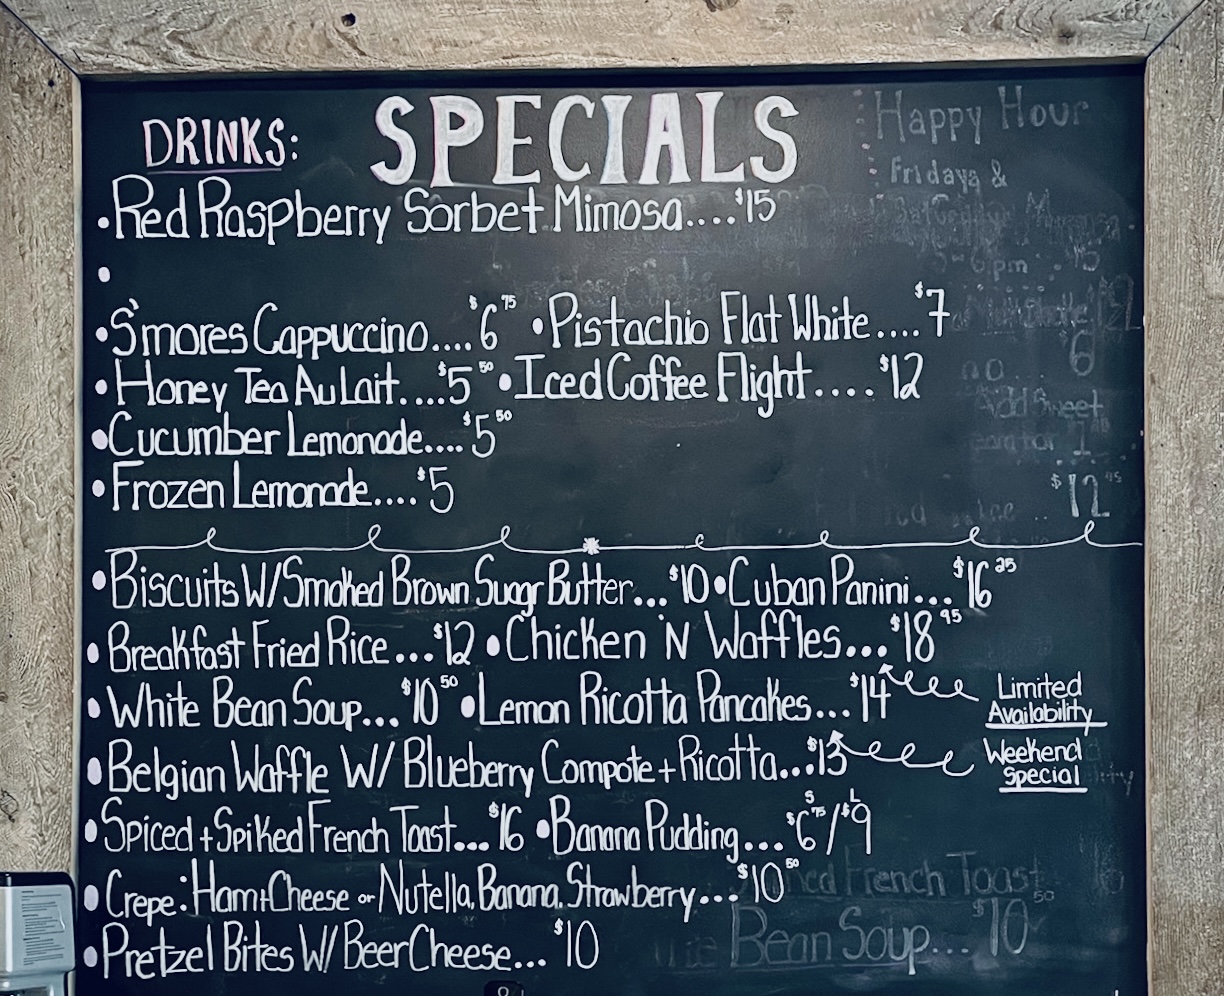 DRINKS: SPECIALS
Happy Hour
Fridays &
• Red Raspberry Sorbet Mimosa....$15
•
5-6pm
• S'mores Cappuccino....$6 75 • Pistachio Flat White....$7
• Honey Tea Au Lait....$5 50 • Iced Coffee Flight....$12
• Cucumber Lemonade....$5 50
• Frozen Lemonade....$5
$12 95
• Biscuits W/ Smoked Brown Suagr Butter...$10 • Cuban Panini...$16 25
• Breakfast Fried Rice...$12 • Chicken 'N Waffles...$18 95
• White Bean Soup...$10 50 • Lemon Ricotta Pancakes...$14
Limited
Availability
• Belgian Waffle W/ Blueberry Compote + Ricotta...$13
Weekend
Special
• Spiced + Spiked French Toast...$16 • Banana Pudding... S $6 75 / L $9
• Crepe: Ham + Cheese or Nutella, Banana, Strawberry...$10 50
French Toast
• Pretzel Bites W/ Beer Cheese...$10
Bean Soup...$10 50